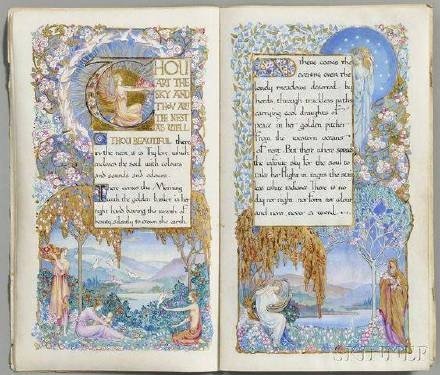 THOU
ART THE
SKY AND
THOU ART
THE NEST
AS WELL.
O THOU BEAUTIFUL, there
in the nest it is thy love which
encloses the soul with colours
and sounds and odours.
There comes the Morning
with the golden basket in her
right hand bearing the wreath of
beauty, silently to crown the earth.
And there comes the
evening over the
lonely meadows deserted by
herds, through trackless paths
carrying cool draughts of
peace in her golden pitcher
from the western ocean
of rest. But there where spreads
the infinite sky for the soul to
take her flight in, reigns the stain
less white radiance. There is no
day nor night, nor form nor colour
and never never a word